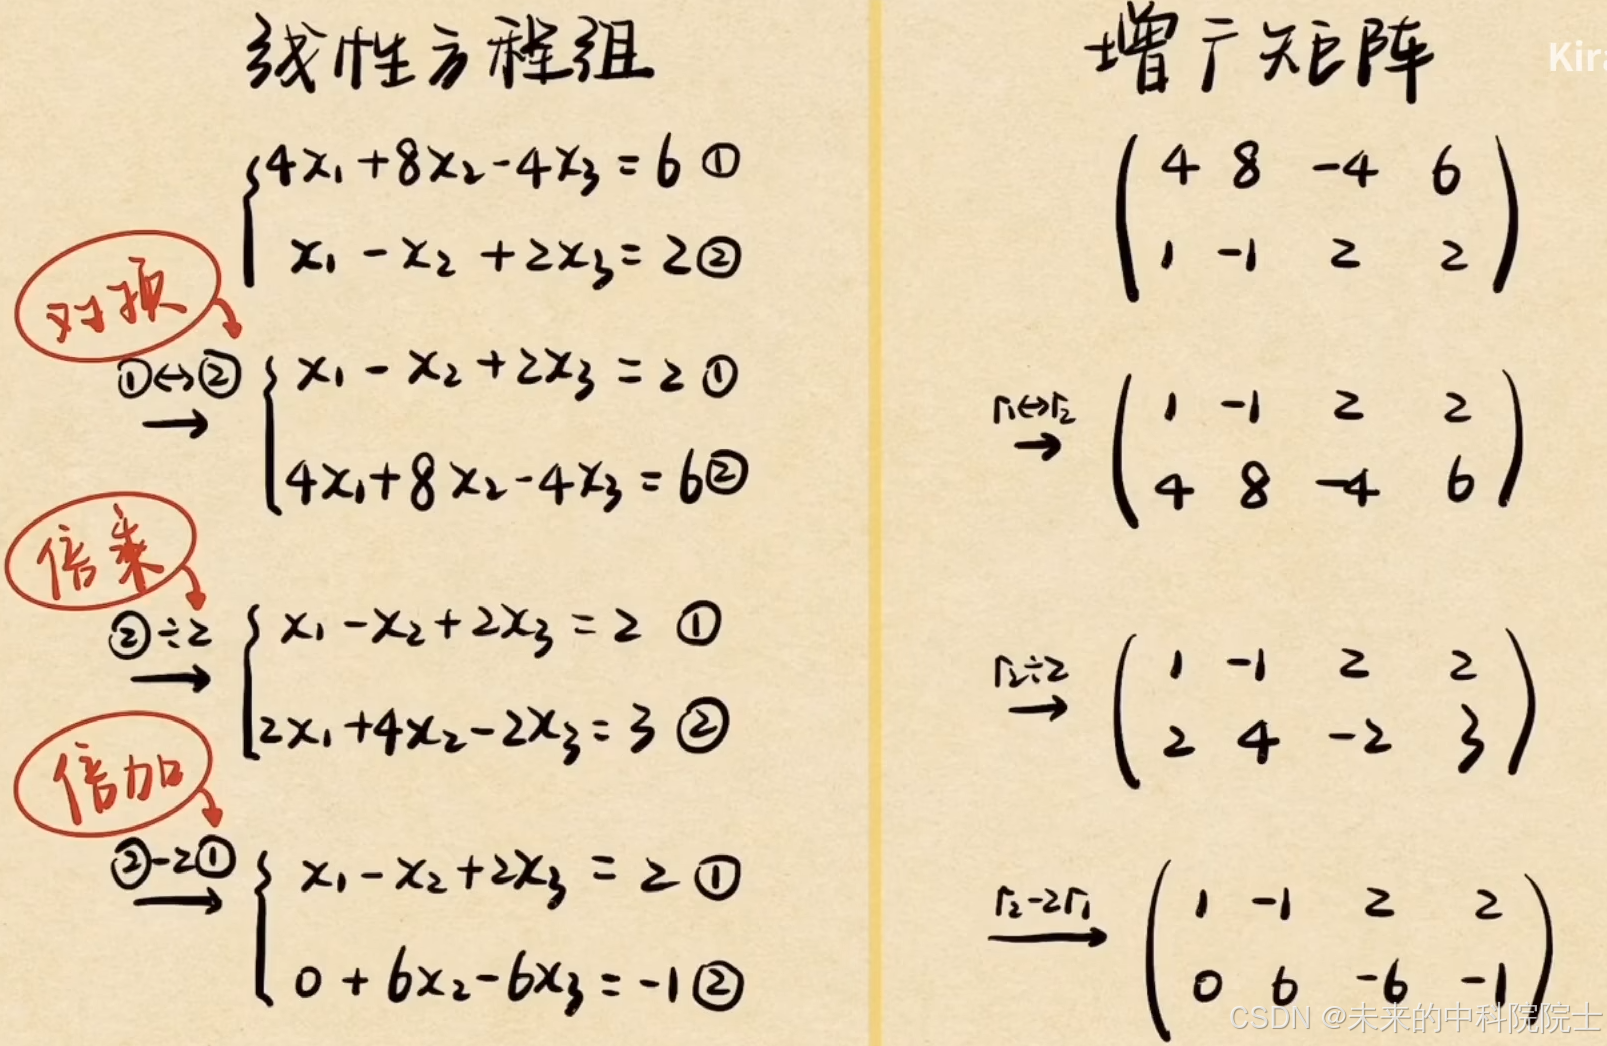 线性方程组
4x₁+8x₂-4x₃=6 ①
x₁-x₂+2x₃=2 ②
对换
①↔②
→
x₁-x₂+2x₃=2 ①
4x₁+8x₂-4x₃=6 ②
倍乘
②÷2
→
x₁-x₂+2x₃=2 ①
2x₁+4x₂-2x₃=3 ②
倍加
②-2①
→
x₁-x₂+2x₃=2 ①
0+6x₂-6x₃=-1 ②
增广矩阵
Kira
4 8 -4 6
1 -1 2 2
r₁↔r₂
→
1 -1 2 2
4 8 -4 6
r₂÷2
→
1 -1 2 2
2 4 -2 3
r₂-2r₁
→
1 -1 2 2
0 6 -6 -1
CSDN @未来的中科院院士